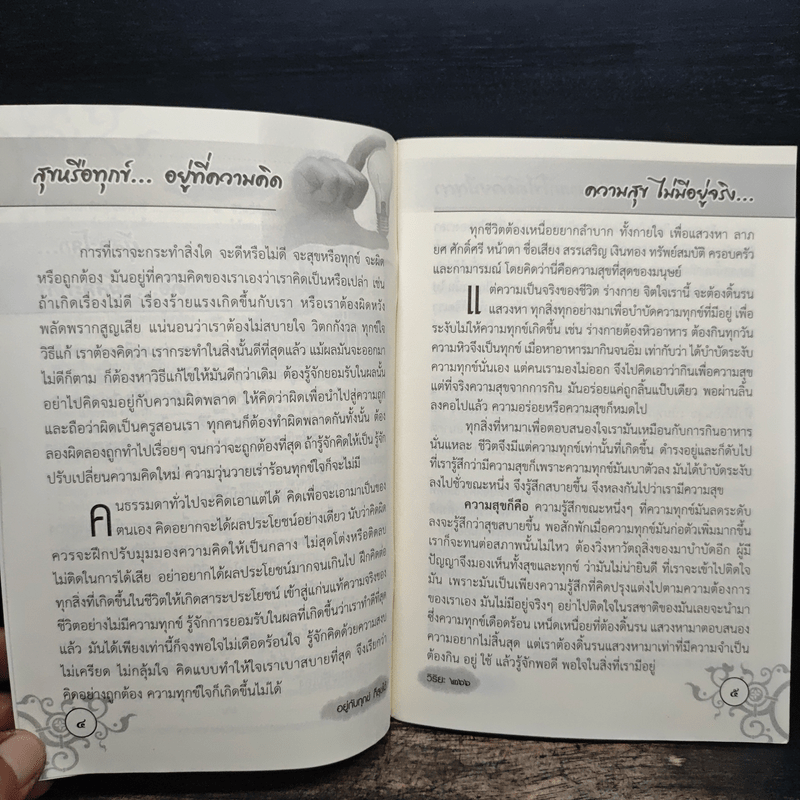 สุขหรือทุกข์... อยู่ที่ความคิด
การที่เราจะกระทำสิ่งใด จะดีหรือไม่ดี จะสุขหรือทุกข์ จะผิด
หรือถูกต้อง มันอยู่ที่ความคิดของเราเองว่าเราคิดเป็นหรือเปล่า เช่น
ถ้าเกิดเรื่องไม่ดี เรื่องร้ายแรงเกิดขึ้นกับเรา หรือเราต้องผิดหวัง
พลัดพรากสูญเสีย แน่นอนว่าเราต้องไม่สบายใจ วิตกกังวล ทุกข์ใจ
วิธีแก้ เราต้องคิดว่า เรากระทำในสิ่งนั้นดีที่สุดแล้ว แม้ผลมันจะออกมา
ไม่ดีก็ตาม ก็ต้องหาวิธีแก้ไขให้มันดีกว่าเดิม ต้องรู้จักยอมรับในผลนั้น
อย่าไปคิดจมอยู่กับความผิดพลาด ให้คิดว่าผิดเพื่อนำไปสู่ความถูก
และถือว่าผิดเป็นครูสอนเรา ทุกคนก็ต้องทำผิดพลาดกันทั้งนั้น ต้อง
ลองผิดลองถูกทำไปเรื่อยๆ จนกว่าจะถูกต้องที่สุด ถ้ารู้จักคิดให้เป็น รู้จัก
ปรับเปลี่ยนความคิดใหม่ ความวุ่นวายเร่าร้อนทุกข์ใจก็จะไม่มี
คนธรรมดาทั่วไปจะคิดเอาแต่ได้ คิดเพื่อจะเอามาเป็นของ
ตนเอง คิดอยากจะได้ผลประโยชน์อย่างเดียว นับว่าคิดผิด
ควรจะฝึกปรับมุมมองความคิดให้เป็นกลาง ไม่สุดโต่งหรือติดลบ
ไม่ติดในการได้เสีย อย่าอยากได้ผลประโยชน์มากจนเกินไป ฝึกคิดต่อ
ทุกสิ่งที่เกิดขึ้นในชีวิตให้เกิดสาระประโยชน์ เข้าสู่แก่นแท้ความจริงของ
ชีวิตอย่างไม่มีความทุกข์ รู้จักการยอมรับในผลที่เกิดขึ้นว่าเราทำดีที่สุด
แล้ว มันได้เพียงเท่านี้ก็จงพอใจไม่เดือดร้อนใจ รู้จักคิดด้วยความสงบ
ไม่เครียด ไม่กลุ้มใจ คิดแบบทำให้ใจเราเบาสบายที่สุด จึงเรียกว่า
คิดอย่างถูกต้อง ความทุกข์ใจก็เกิดขึ้นไม่ได้
๔
อยู่กับทุกข์
ความสุข ไม่มีอยู่จริง...
ทุกชีวิตต้องเหนื่อยยากลำบาก ทั้งกายใจ เพื่อแสวงหา ลาภ
ยศ ศักดิ์ศรี หน้าตา ชื่อเสียง สรรเสริญ เงินทอง ทรัพย์สมบัติ ครอบครัว
และกามารมณ์ โดยคิดว่านี่คือความสุขที่สุดของมนุษย์
แต่ความเป็นจริงของชีวิต ร่างกาย จิตใจเรานี้ จะต้องดิ้นรน
แสวงหา ทุกสิ่งทุกอย่างมาเพื่อบำบัดความทุกข์ที่มีอยู่ เพื่อ
ระงับไม่ให้ความทุกข์เกิดขึ้น เช่น ร่างกายต้องหิวอาหาร ต้องกินทุกวัน
ความหิวจึงเป็นทุกข์ เมื่อหาอาหารมากินจนอิ่ม เท่ากับว่า ได้บำบัดระงับ
ความทุกข์นั่นเอง แต่คนเรามองไม่ออก จึงไปคิดเอาว่ากินเพื่อความสุข
แต่ที่จริงความสุขจากการกิน มันอร่อยแค่ถูกลิ้นแป๊บเดียว พอผ่านลิ้น
ลงคอไปแล้ว ความอร่อยหรือความสุขก็หมดไป
ทุกสิ่งที่หามาเพื่อตอบสนองใจเรามันเหมือนกับการกินอาหาร
นั่นแหละ ชีวิตจึงมีแต่ความทุกข์เท่านั้นที่เกิดขึ้น ดำรงอยู่และก็ดับไป
ที่เรารู้สึกว่ามีความสุขก็เพราะความทุกข์มันเบาตัวลง มันได้บำบัดระงับ
ลงไปชั่วขณะหนึ่ง จึงรู้สึกสบายขึ้น จึงหลงกันไปว่าเรามีความสุข
ความสุขก็คือ ความรู้สึกขณะหนึ่งๆ ที่ความทุกข์มันลดระดับ
ลงจะรู้สึกว่าสุขสบายขึ้น พอสักพักเมื่อความทุกข์มันก่อตัวเพิ่มมากขึ้น
เราก็จะทนต่อสภาพนั้นไม่ไหว ต้องวิ่งหาวัตถุสิ่งของมาบำบัดอีก ผู้มี
ปัญญาจึงมองเห็นทั้งสุขและทุกข์ ว่ามันไม่น่ายินดี ที่เราจะเข้าไปติดใจ
มัน เพราะมันเป็นเพียงความรู้สึกที่คิดปรุงแต่งไปตามความต้องการ
ของเราเอง มันไม่มีอยู่จริงๆ อย่าไปติดใจในรสชาติของมันเลยจะนำมา
ซึ่งความทุกข์เดือดร้อน เหน็ดเหนื่อยที่ต้องดิ้นรน แสวงหามาตอบสนอง
ความอยากไม่สิ้นสุด แต่เราต้องดิ้นรนแสวงหามาเท่าที่มีความจำเป็น
ต้องกิน อยู่ ใช้ แล้วรู้จักพอดี พอใจในสิ่งที่เรามีอยู่
วิริยะ ๒๗๖๖
๕